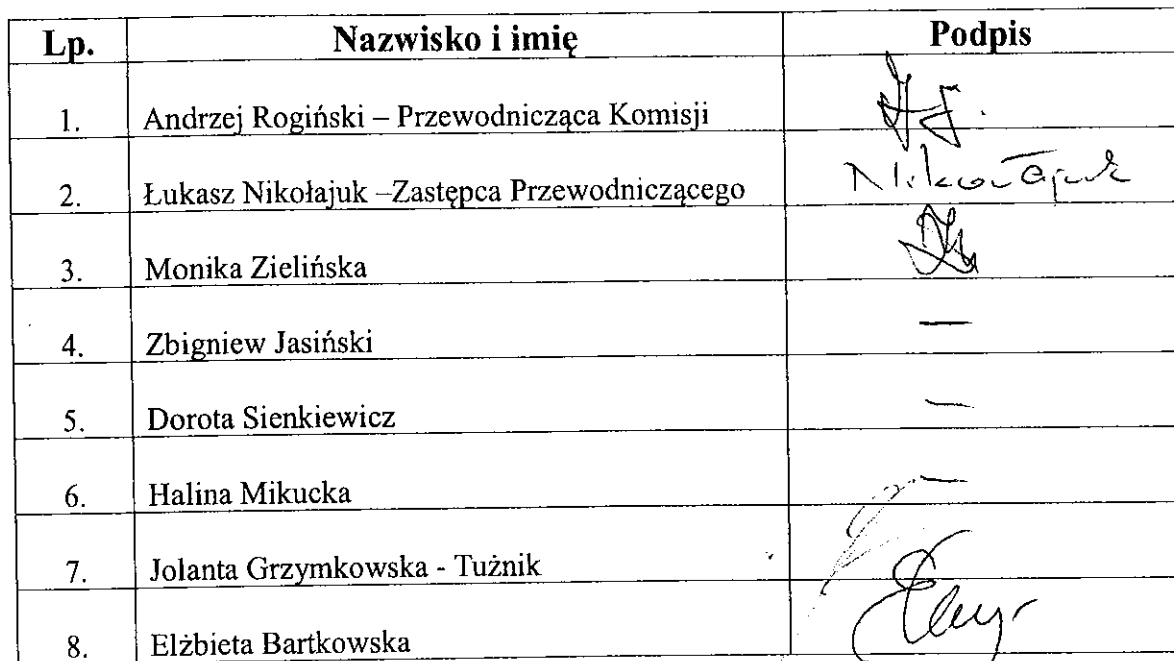 Lp. Nazwisko i imię Podpis
1. Andrzej Rogiński – Przewodnicząca Komisji
2. Łukasz Nikołajuk –Zastępca Przewodniczącego Nikołajuk
3. Monika Zielińska
4. Zbigniew Jasiński —
5. Dorota Sienkiewicz —
6. Halina Mikucka —
7. Jolanta Grzymkowska - Tużnik
8. Elżbieta Bartkowska